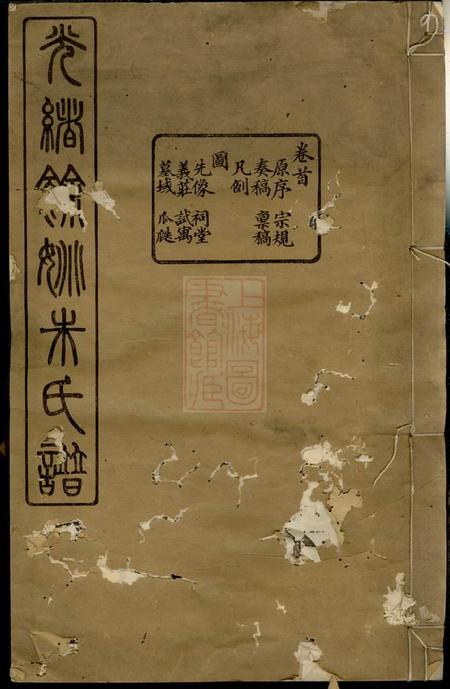 卷首
原序 宗規
奏稿 稟稿
凡例
圖
先像 祠堂
義莊 試寓
墓域 瓜瓞
光緒餘姚朱氏譜
上海圖書館藏